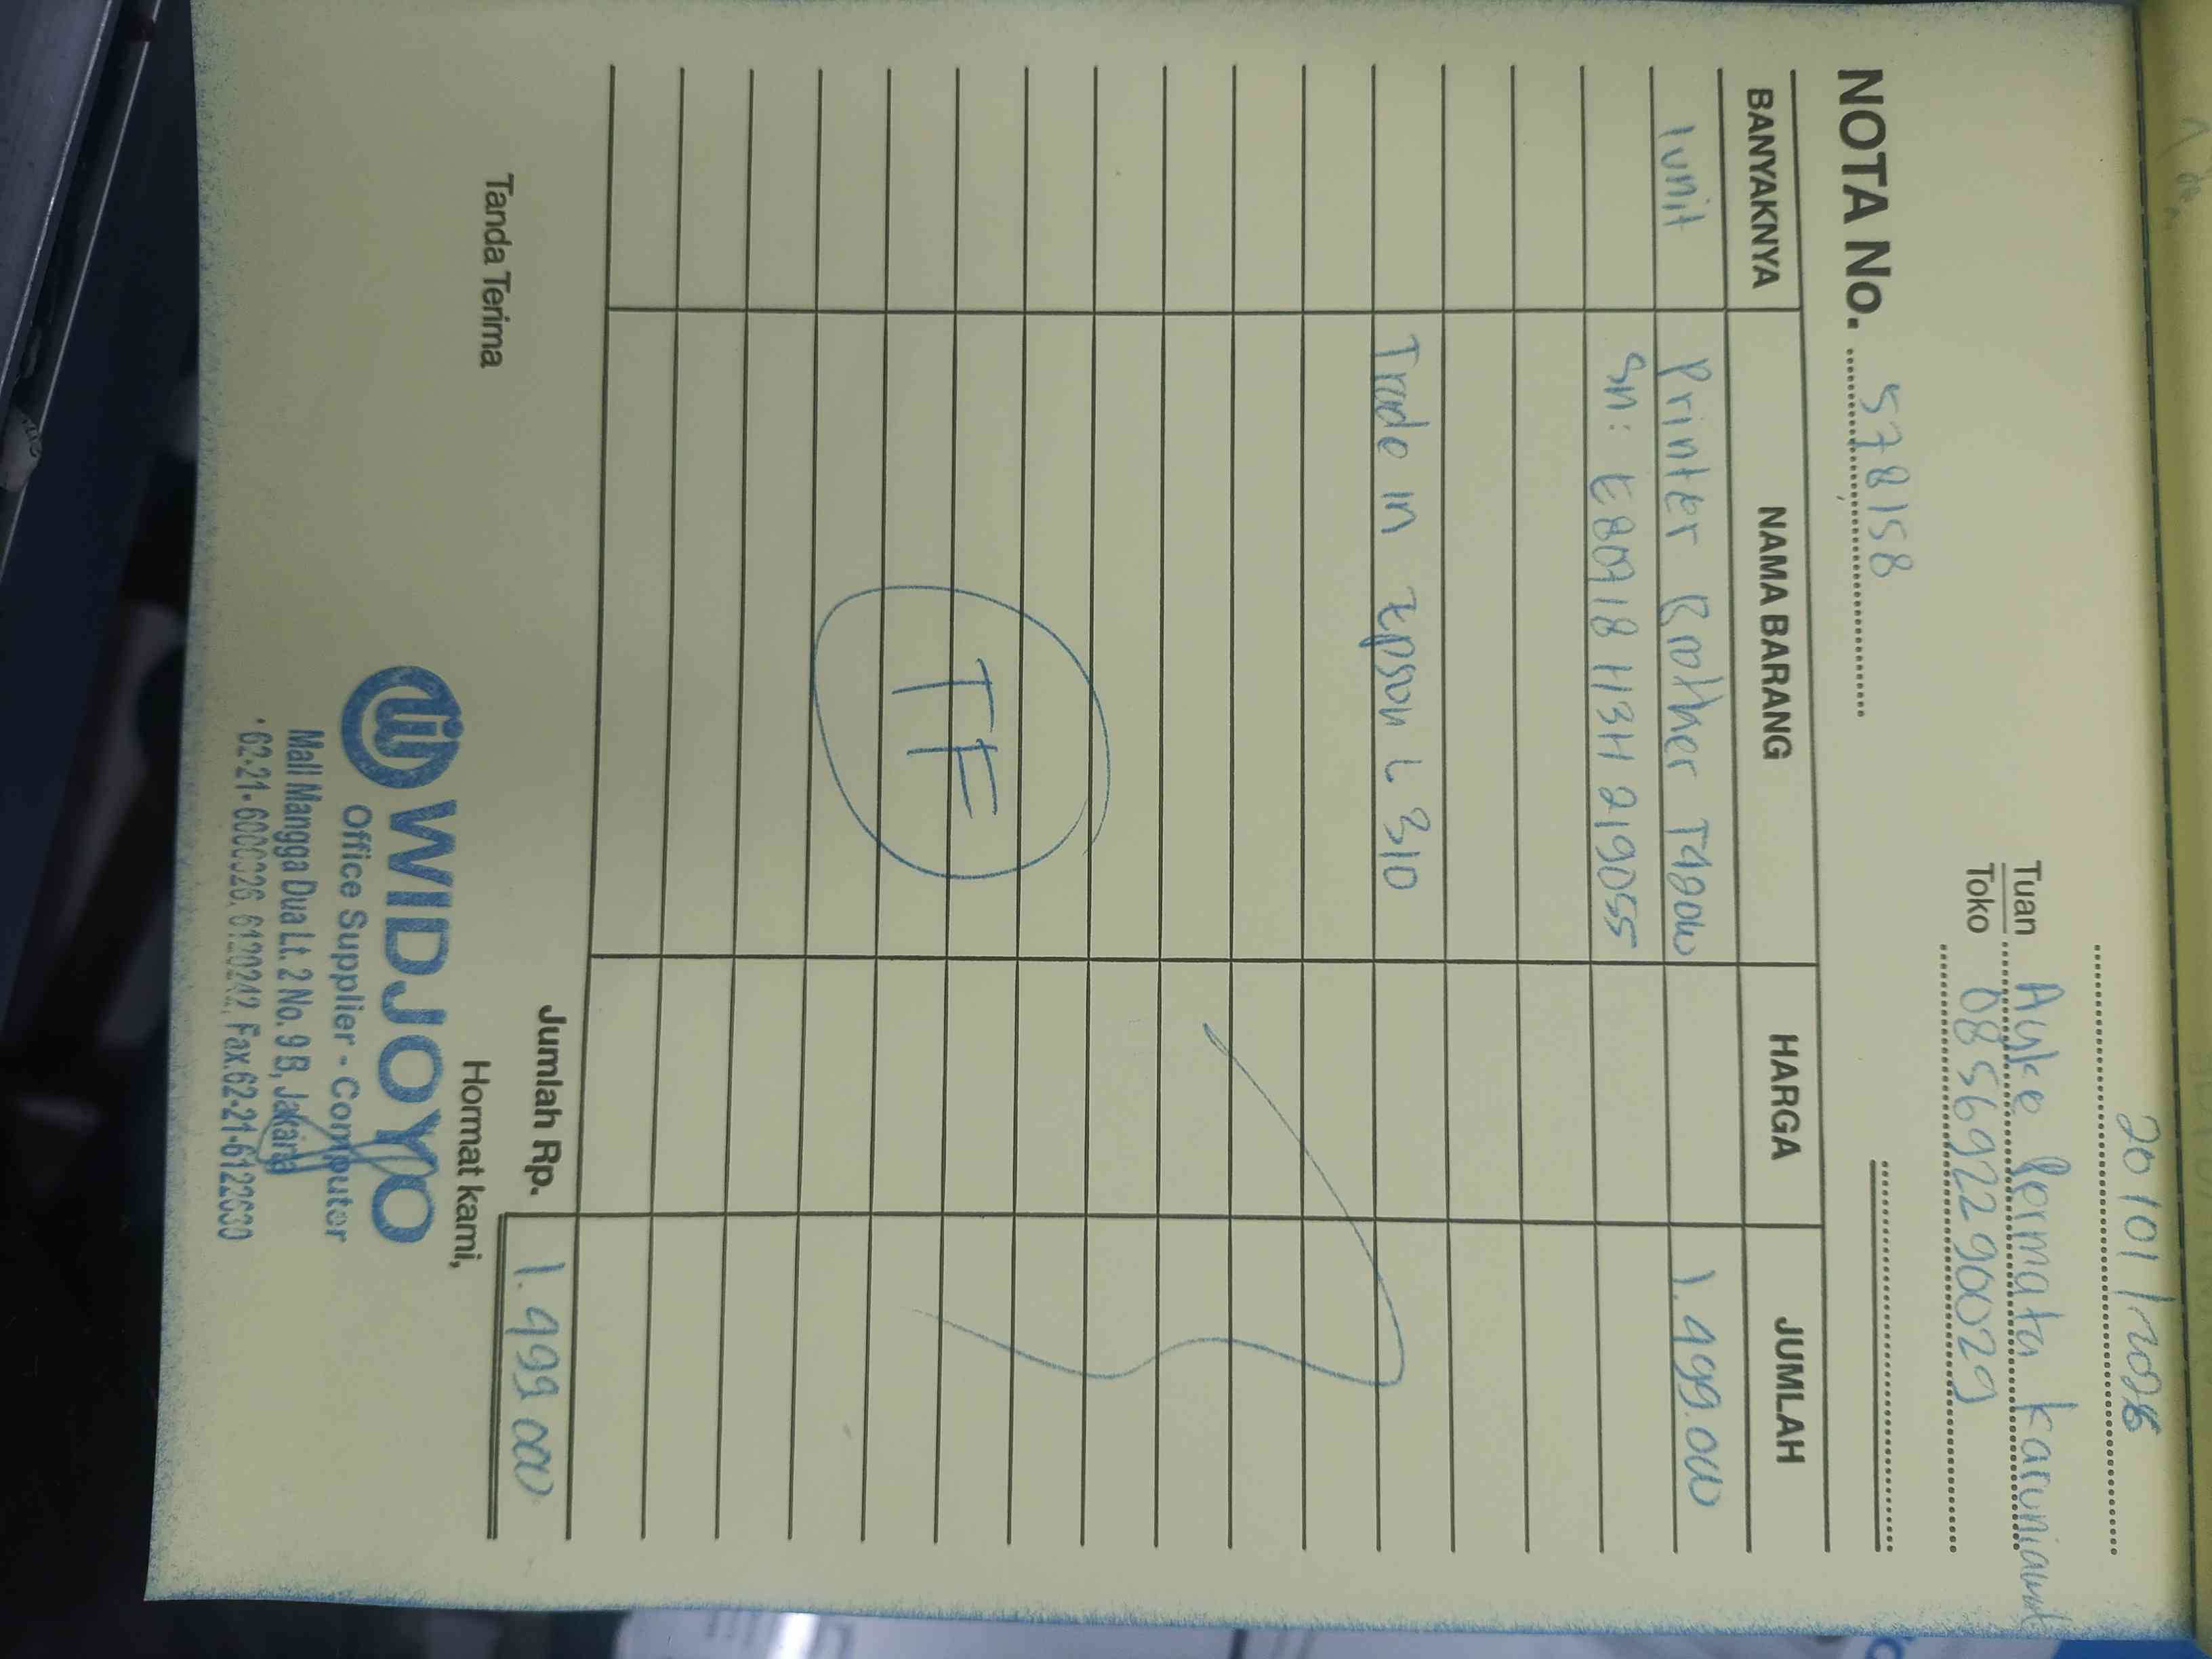 20/01/2026
Tuan Ayke Permata Karuniawati
Toko 085692290029
NOTA No. 578158
BANYAKNYA NAMA BARANG HARGA JUMLAH
1 unit Printer Brother T420W 1.499.000
SN: E80918H3H219055
Trade in Epson L310
TF
Jumlah Rp. 1.499.000
Tanda Terima Hormat kami,
WIDJOYO
Office Supplier - Computer
Mall Mangga Dua Lt. 2 No. 9 B, Jakarta
62-21-6000026, 6120242, Fax.62-21-6122630